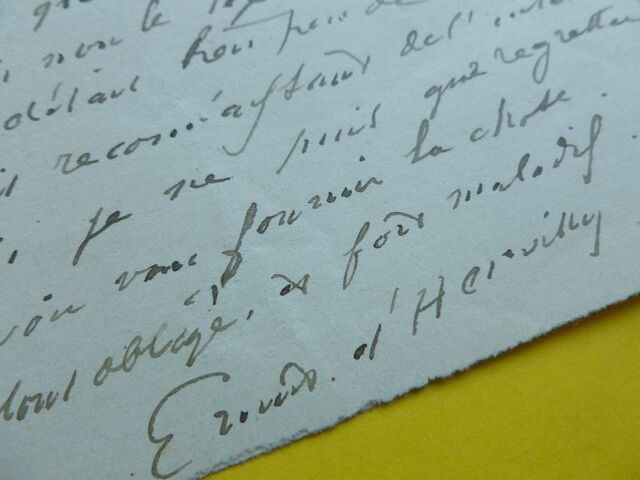 non le
détail bien peu de
reconnaissant de l'
je ne puis que regretter
vous fournir la chose.
tout obligé, et fort maladif.
Ernest d'Hervilly